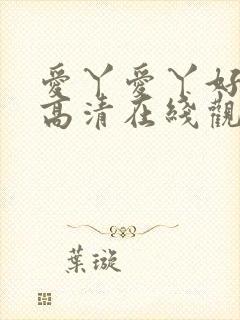 愛丫愛丫好
高清在綫觀
葉璇